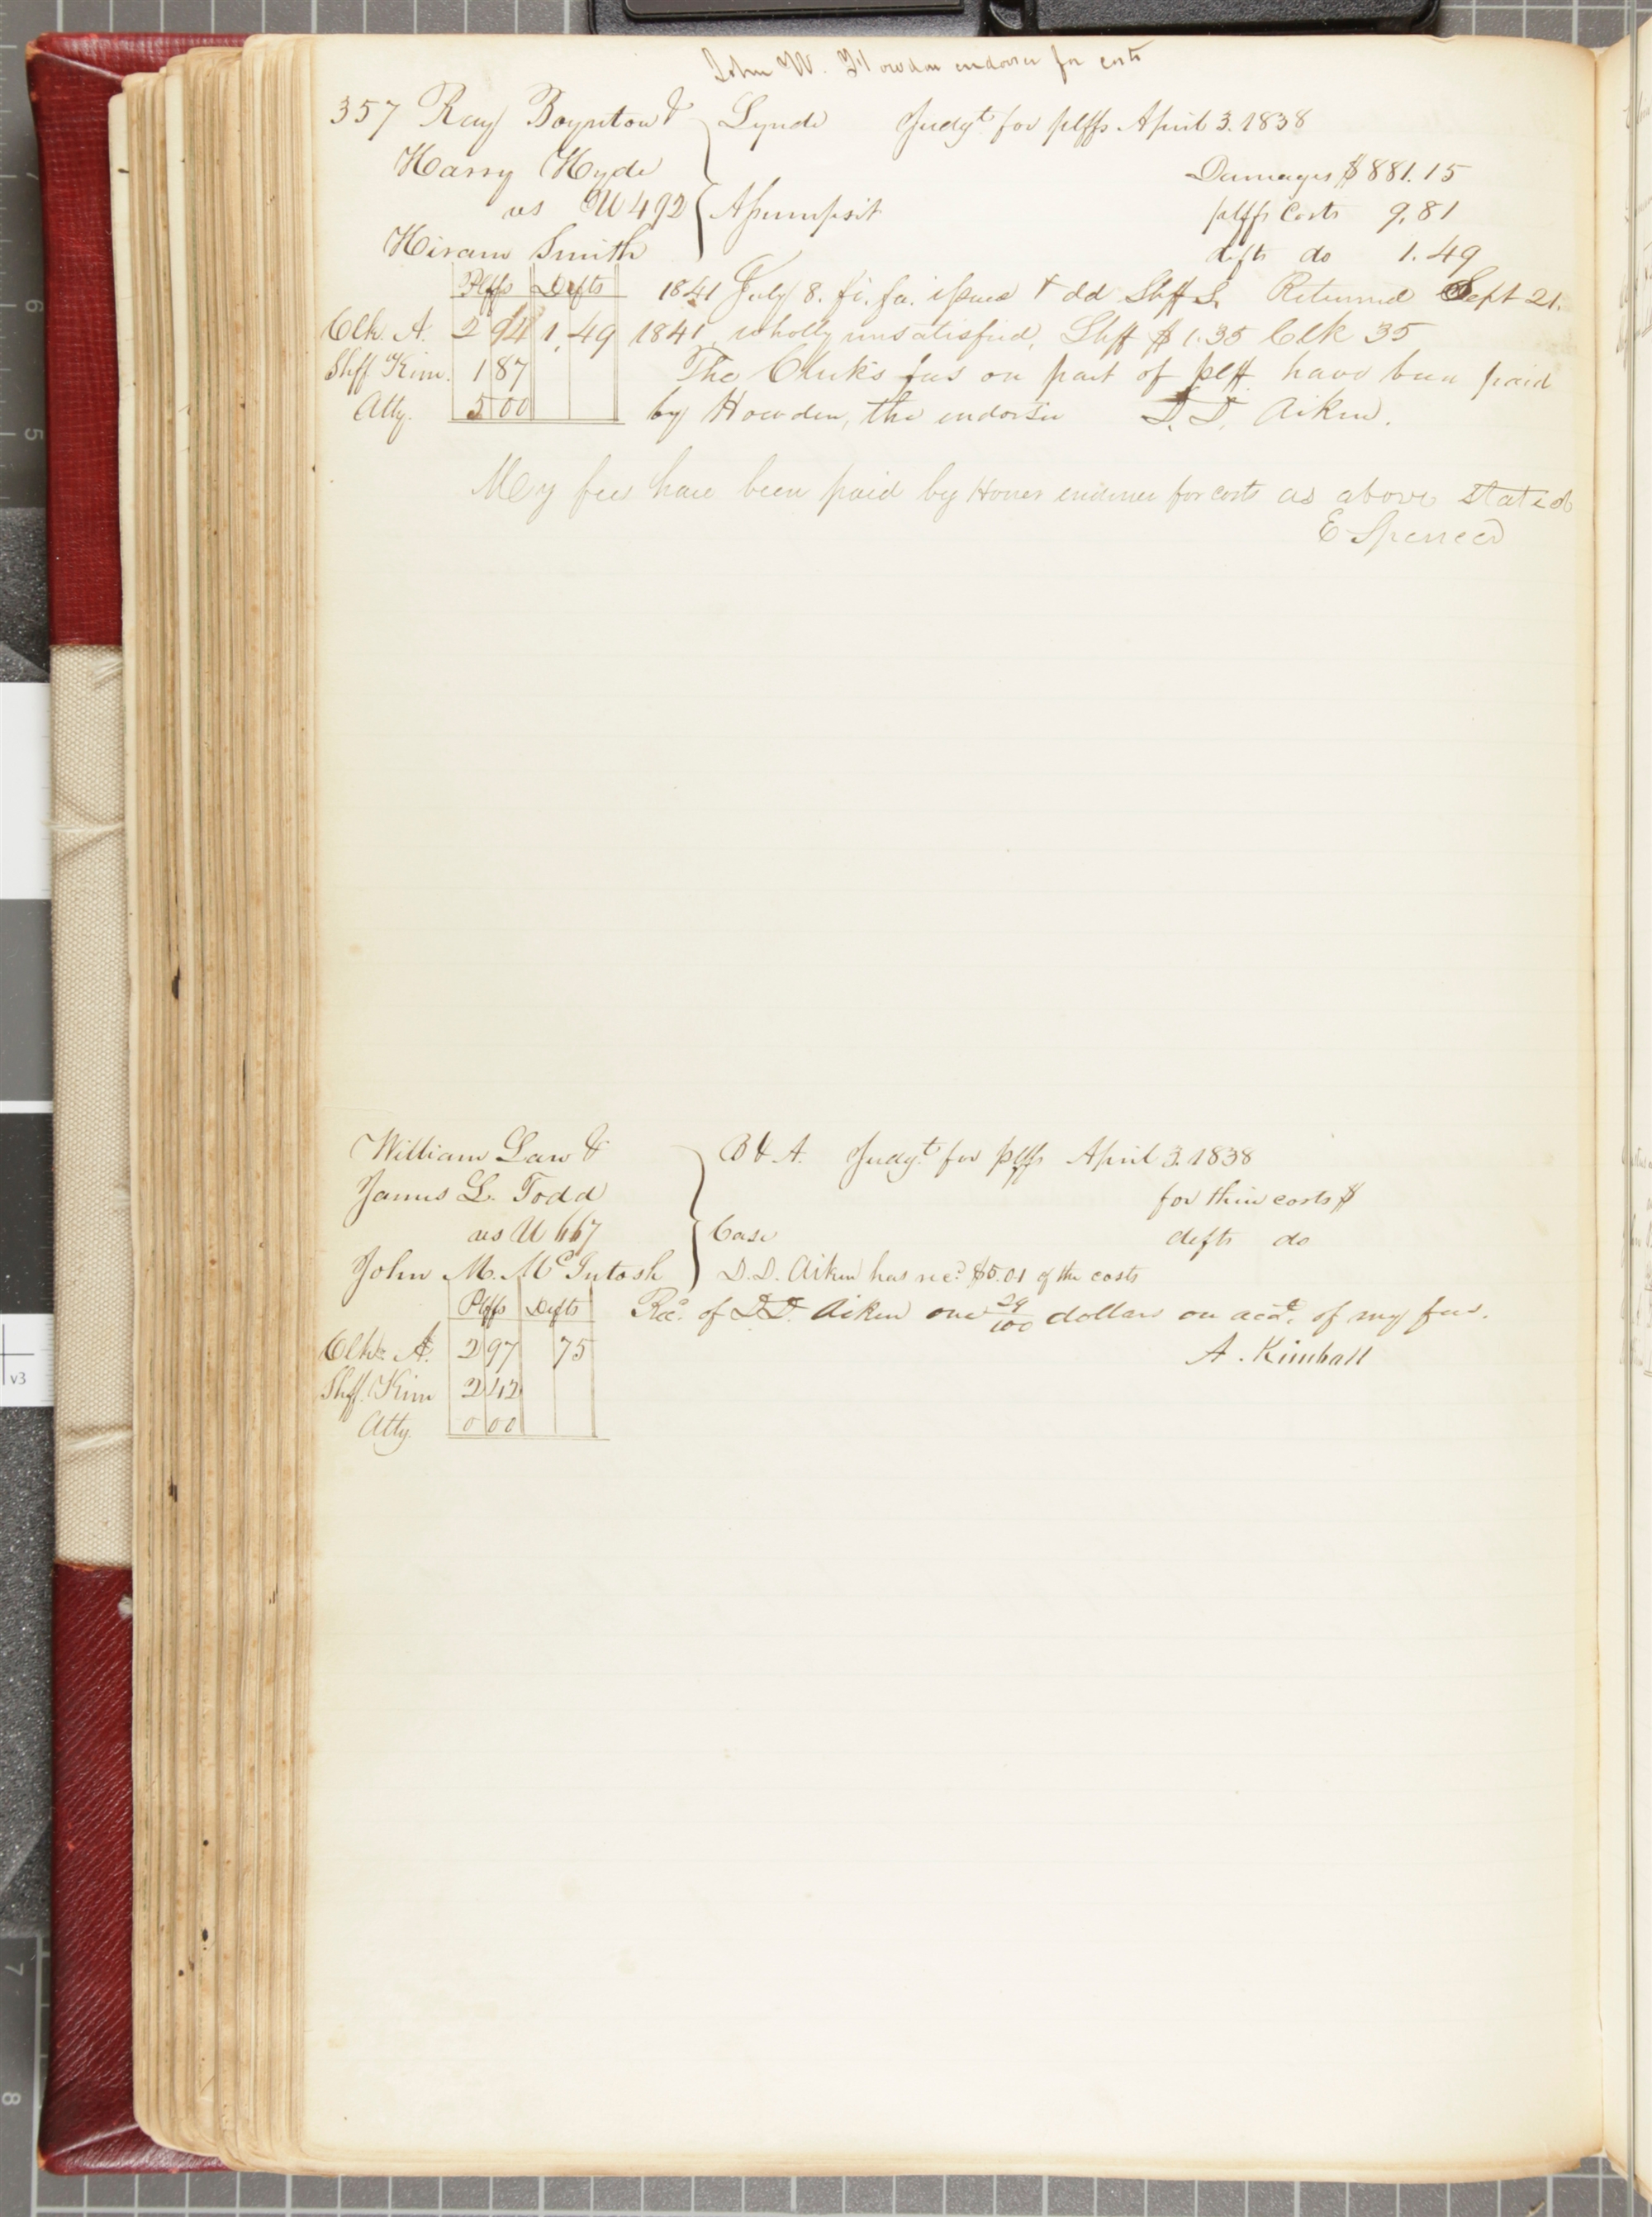 John W. Howden endorser for costs
357 Ray Boynton & Lynde Judgt. for plffs April 3. 1838
Harry Hyde Damages $881.15
vs U 492 Assumpsit plffs Costs 9.81
Hiram Smith defts do 1.49
Plffs Defts 1841 July 8. fi. fa. issued & dd Shff S. Returned Sept 21.
Clk. A. 2 94 1,49 1841, wholly unsatisfied, Shff $1.35 Clk 35
Shff Kim. 1 87 The Clerk's fees on part of plff. have been paid
Atty. 5 00 by Howden, the endorser D. D. Aiken.
My fees have been paid by endorser for costs as above stated
E Spencer
William Law & B & A. Judgt. for plffs April 3. 1838
James L. Todd for their costs $
vs U 667 Case defts do
John M. McIntosh D. D. Aiken has recd. $5.01 of the costs
Plffs Defts Recd. of D. D. Aiken one 29/100 dollars on acct. of my fees.
Clk. A. 2 97 75 A. Kimball
Shff. Kim 2 42
Atty. 0 00